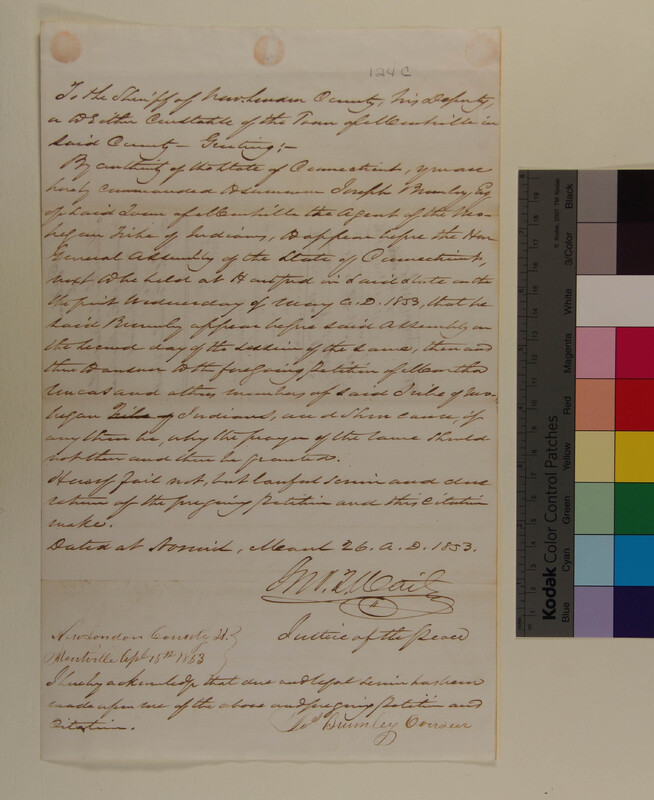 124 C
To the Sheriff of New London County, his Deputy,
or Either Constable of the Town of Montville in
said County — Greeting:—
By authority of the State of Connecticut, you are
hereby commanded to summon Joseph Brumley, Esq
of said Town of Montville the Agent of the Mo-
hegan Tribe of Indians, to appear before the Hon
General Assembly of the State of Connecticut,
next to be held at Hartford in said State on the
the first Wednesday of May A.D. 1853, that he
said Brumley appear before said Assembly on
the second day of the session of the same, then and
there to answer to the foregoing Petition of
Uncas and others members of said Tribe of Mo-
hegan Tribe of Indians, and Shew cause, if
any there be, why the prayer of the same should
not then and there be granted.
Hereof fail not, but lawful service and due
return of the foregoing Petition and this Citation
make.
Dated at Norwich, March 26. A.D. 1853.
Justice of the Peace
New London County SS.
Montville Apl 15th 1853
I hereby acknowledge that due and legal service has been
made upon me of the above and foregoing Petition and
Citation.
Jos Brumley Overseer
Kodak Color Control Patches
Blue
Cyan
Green
Yellow
Red
Magenta
White
3/Color
Black
© Kodak, 2007 TM: Kodak